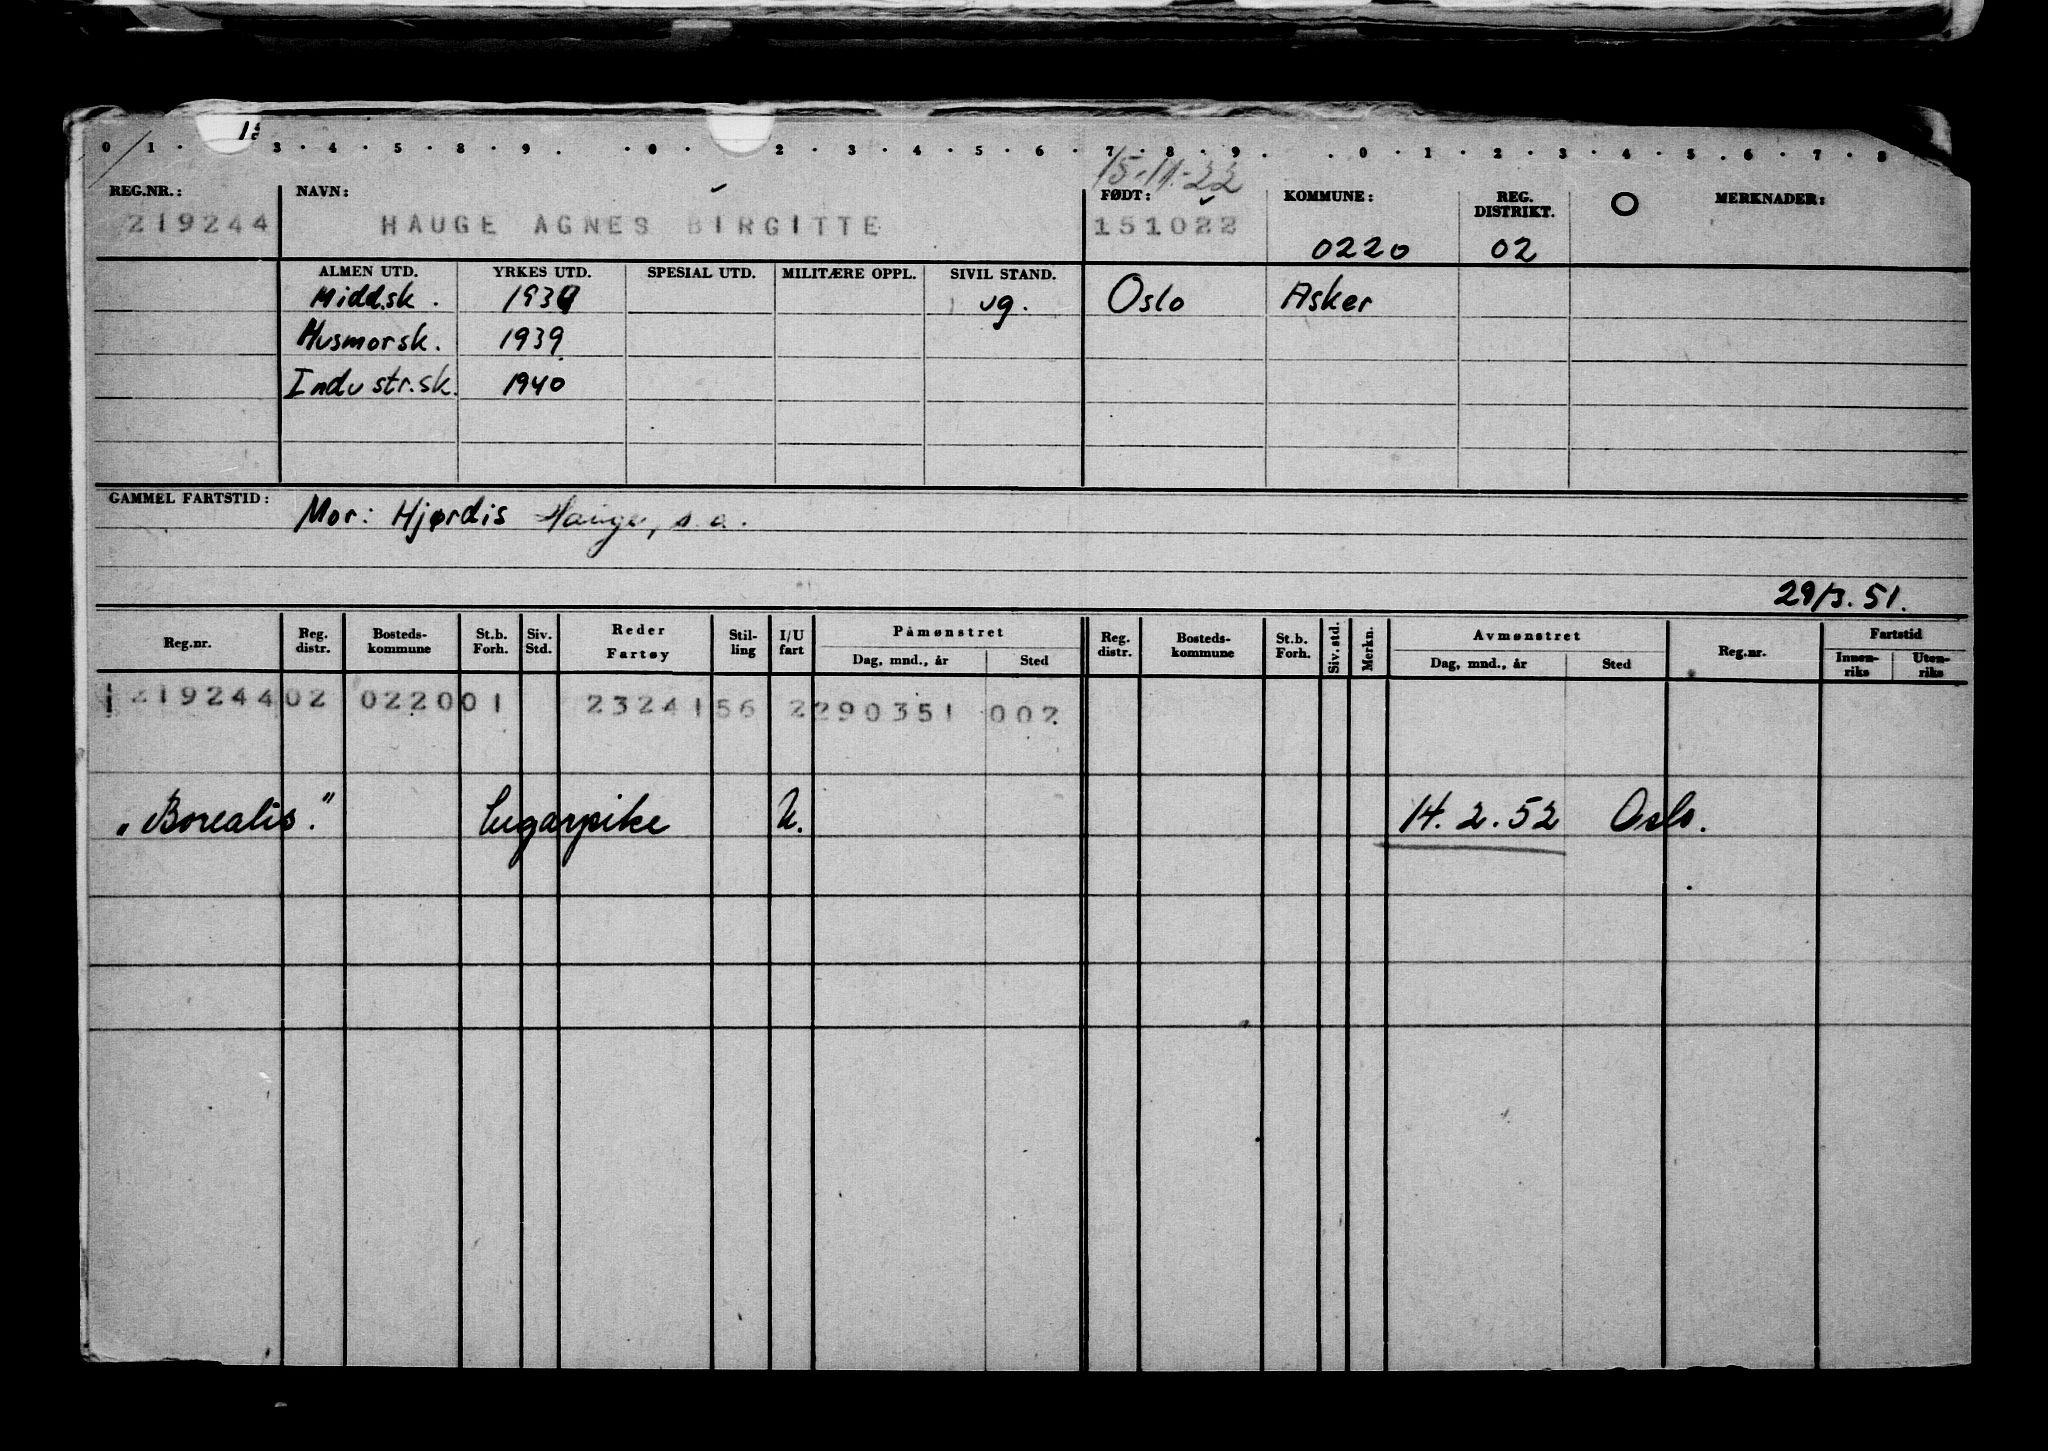 0 1 . 3 . 4 . 5 . 8 . 9 . . 0 . 2 . 3 . 4 . 5 . 6 . 7 . 8 . 9 . . 0 . 1 . 2 . 3 . 4 . 5 . 6 . 7 . 8
15.11.22
REG.NR.: NAVN: FØDT: KOMMUNE: REG. DISTRIKT. O MERKNADER:
219244 HAUGE AGNES BIRGITTE 151022 0220 02
ALMEN UTD. YRKES UTD. SPESIAL UTD. MILITÆRE OPPL. SIVIL STAND.
Midd.sk. 1939 ug. Oslo Asker
Husmorsk. 1939
Industr.sk. 1940
GAMMEL FARTSTID: Mor: Hjørdis Hauge, s.a.
29/3.51.
Reg.nr. Reg. distr. Bosteds-kommune St.b. Forh. Siv. Std. Reder Fartøy Stil-ling I/U fart Påmønstret Dag, mnd., år Sted Reg. distr. Bosteds-kommune St.b. Forh. Siv. std. Merkn. Avmønstret Dag, mnd., år Sted Reg.nr. Fartstid Innen-riks Uten-riks
219244 02 0220 01 23241 56 2 290351 002
"Borealis." Lugarpike U. 14.2.52 Oslo.